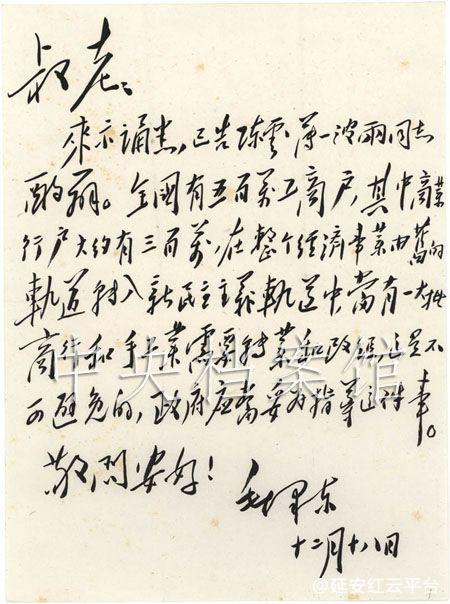 叔老:
來示誦悉,已告陈雲、薄一波兩同志
酌辦。全國有五百萬工商户,其中商業
行户大约有三百萬,在整个经济事業由舊的
軌道轉入新民主主義軌道中當有一大批
商業和手工業需要轉業和改組,這是不
可避免的,政府应當妥为指導這件事。
敬問安好!
毛泽东
十二月十八日
中央档案馆
@延安红云平台